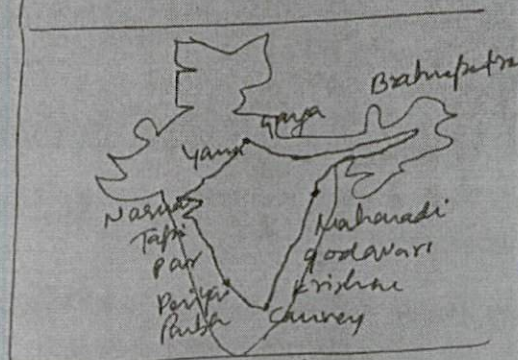 Brahmaputra
Ganga
Yamu
Narma
Tapi
Par
Periyar
Pamba
Mahanadi
godavari
krishna
Cauvery